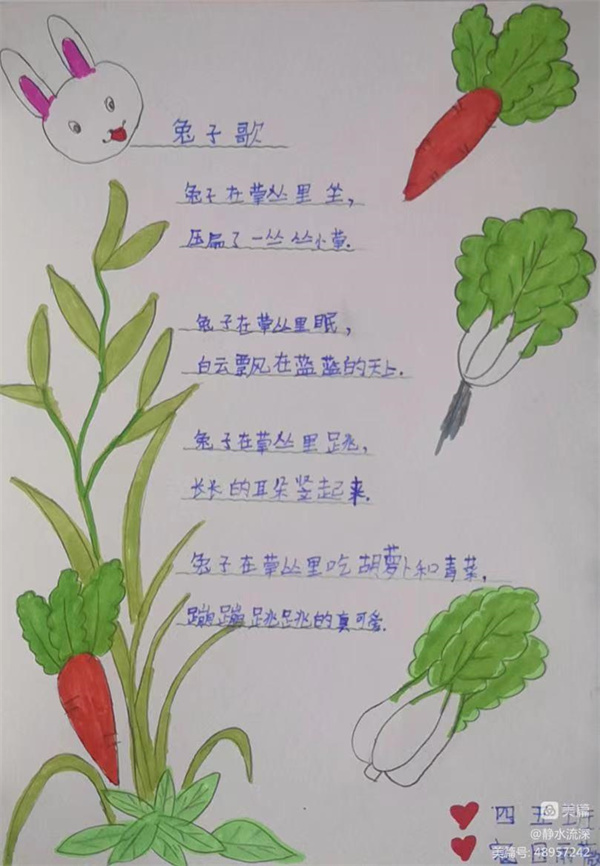 兔子歌
兔子在草丛里坐，
压扁了一丛丛小草.
兔子在草丛里眠，
白云飘在蓝蓝的天上.
兔子在草丛里跳，
长长的耳朵竖起来.
兔子在草丛里吃胡萝卜和青菜，
蹦蹦跳跳的真可爱.
四五班
美篇
@静水流深
美篇号:48957242